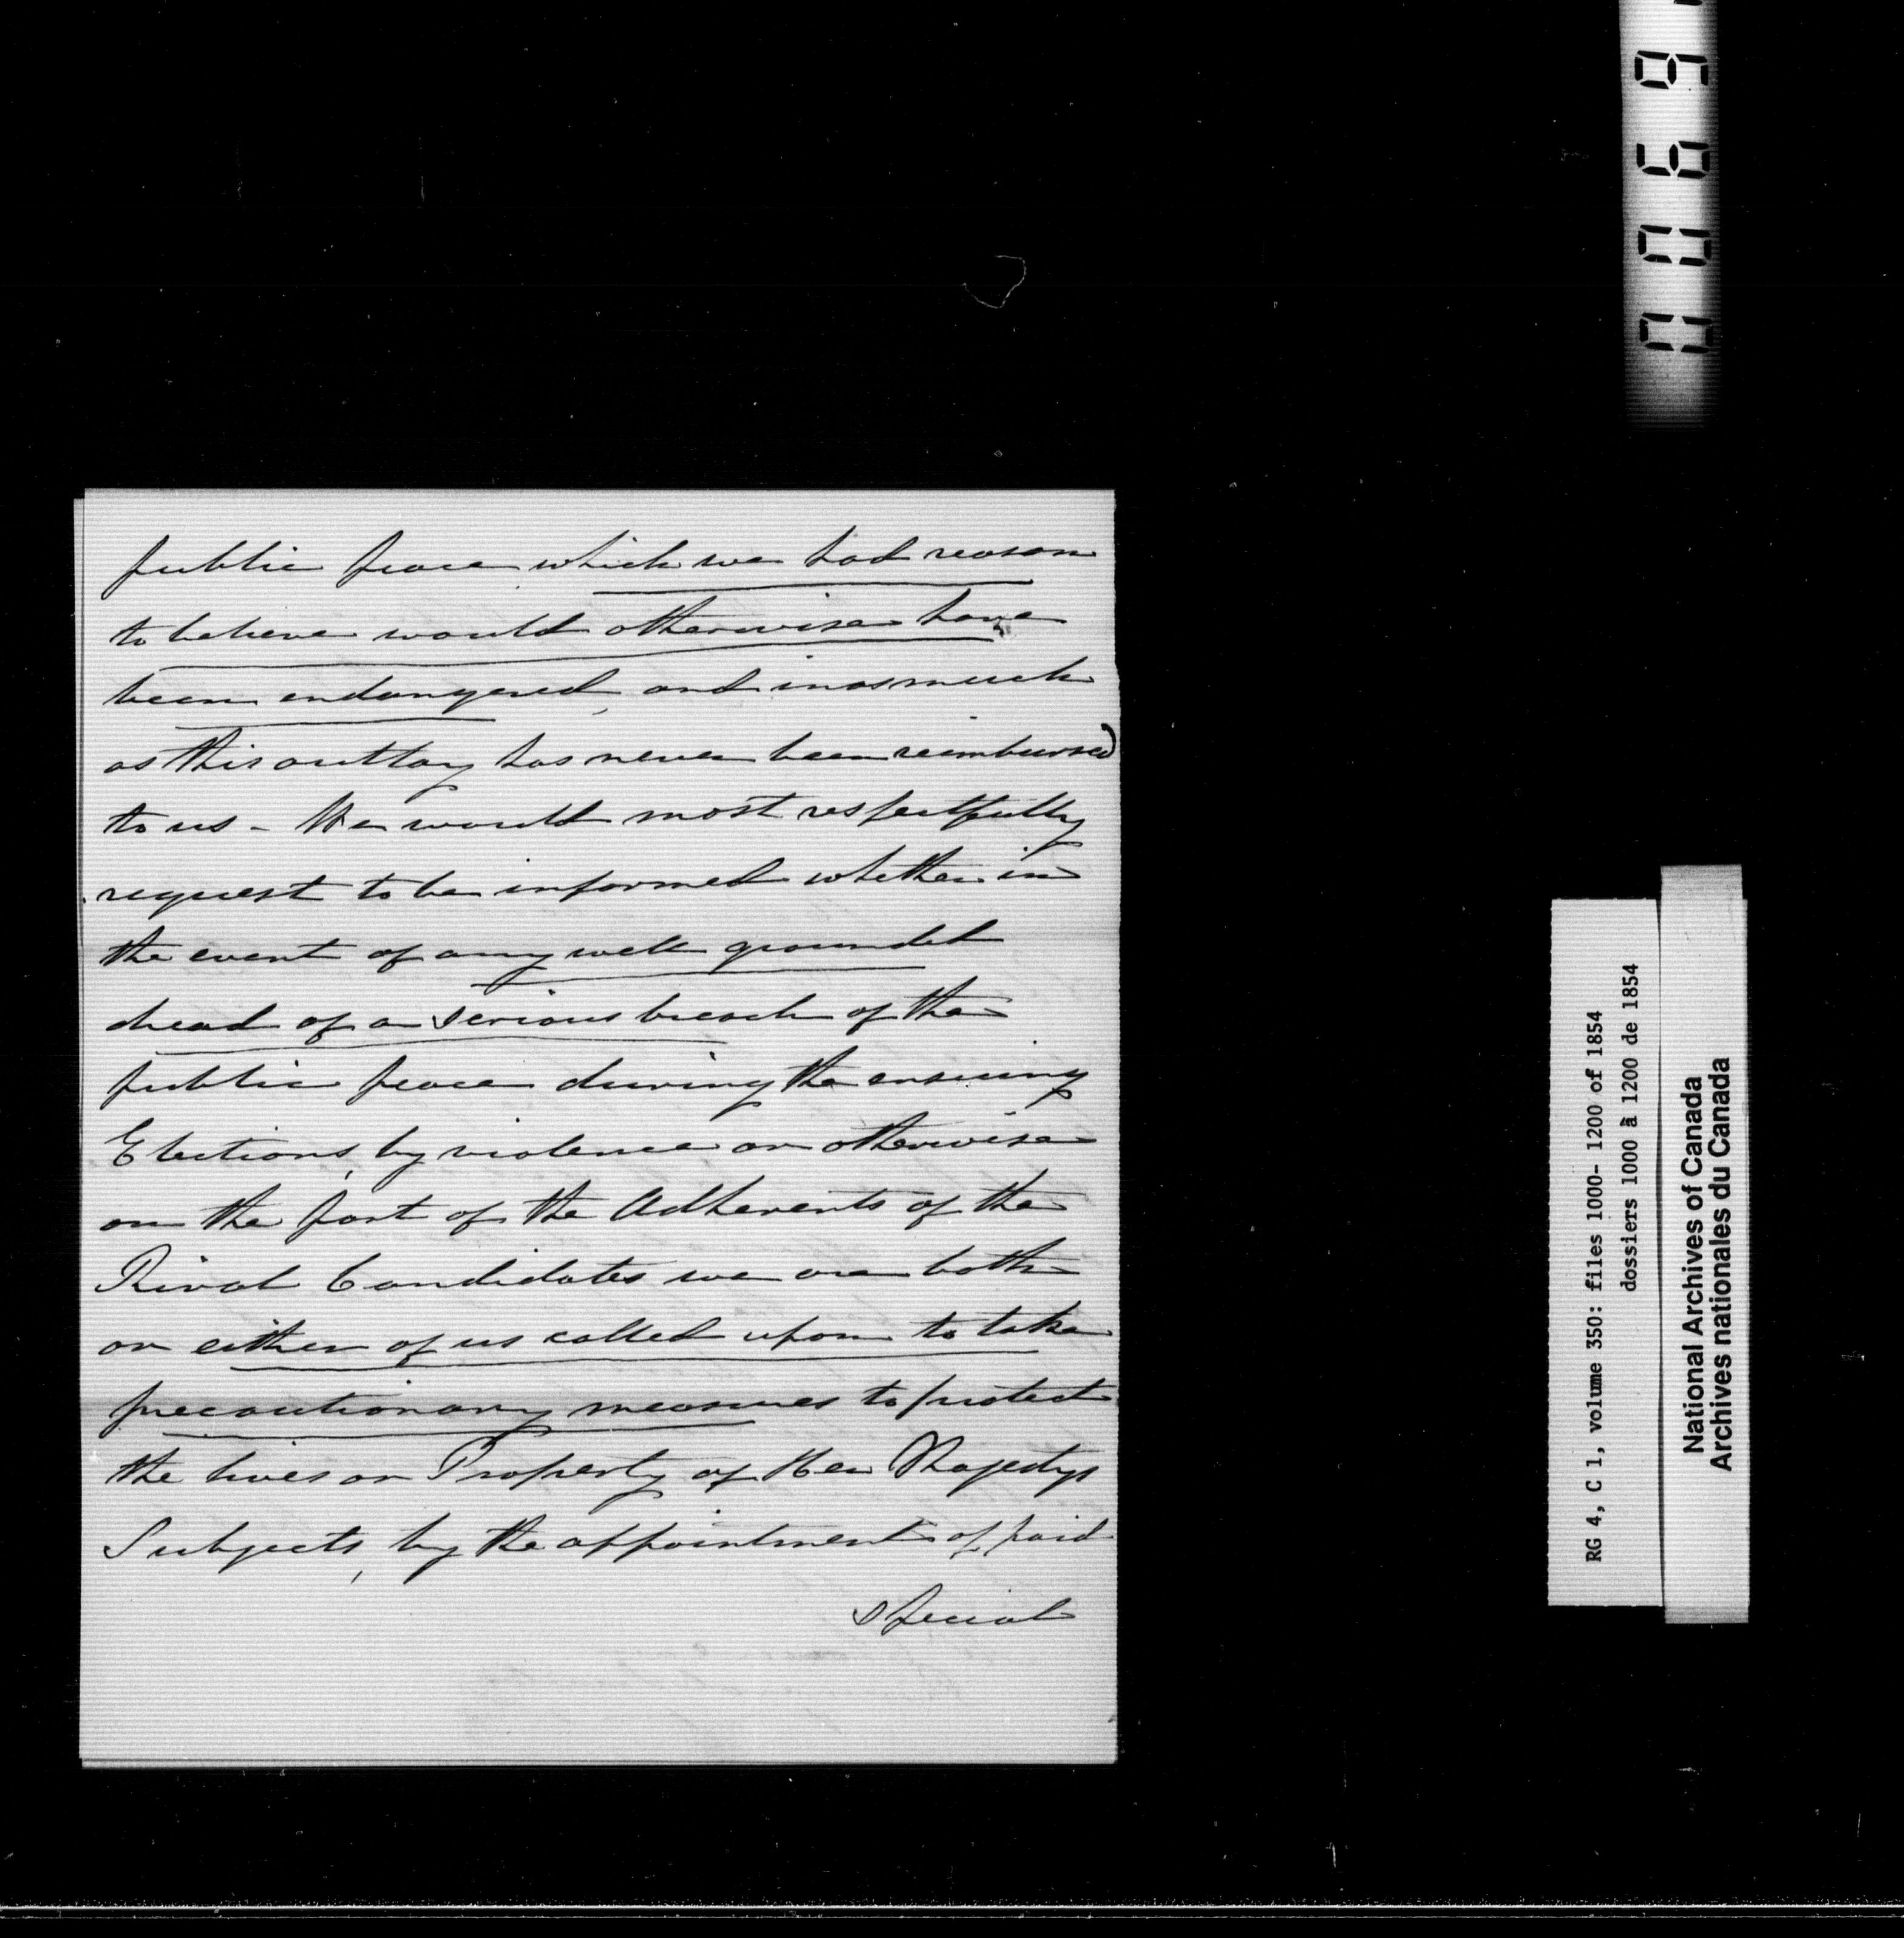 public peace which we had reason
to believe would otherwise have
been endangered, and inasmuch
as this outlay has never been reimbursed
to us - We would most respectfully
request to be informed whether in
the event of any well grounded
dread of a serious breach of the
public peace during the ensuing
Elections, by violence or otherwise
on the part of the Adherents of the
Rival Candidates we are both
or either of us called upon to take
precautionary measures to protect
the lives or Property of Her Majestys
Subjects, by the appointment of paid
special
RG 4, C 1, volume 350: files 1000- 1200 of 1854
dossiers 1000 à 1200 de 1854
National Archives of Canada
Archives nationales du Canada